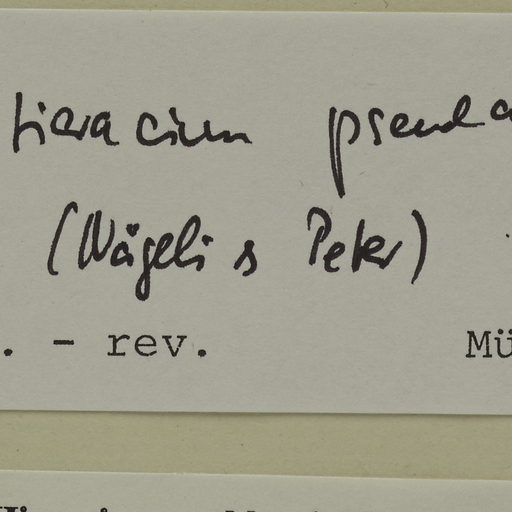 Hieracium
(Nägeli & Peter)
. - rev. Mü